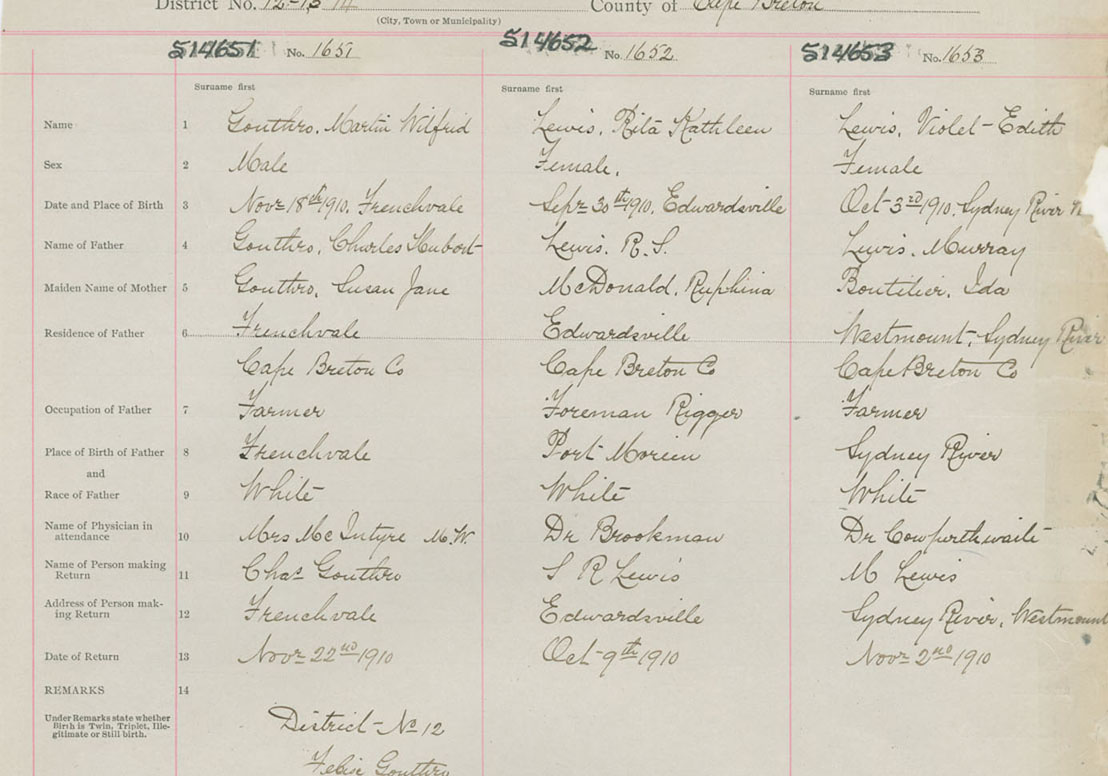 District No. 12-13 14 County of Cape Breton
(City, Town or Municipality)
514651 No. 1651 514652 No. 1652 514653 No. 1653
Surname first Surname first Surname first
Name 1 Gouthro, Martin Wilfrid Lewis, Rita Kathleen Lewis, Violet-Edith
Sex 2 Male Female, Female
Date and Place of Birth 3 Novr 18th 1910, Frenchvale Sepr 30th 1910, Edwardsville Oct 3rd 1910, Sydney River
Name of Father 4 Gouthro, Charles Hubert Lewis, R. S. Lewis, Murray
Maiden Name of Mother 5 Gouthro, Susan Jane McDonald, Ruphina Boutilier, Ida
Residence of Father 6 Frenchvale Edwardsville Westmount, Sydney River
Cape Breton Co Cape Breton Co Cape Breton Co
Occupation of Father 7 Farmer Foreman Rigger Farmer
Place of Birth of Father 8 Frenchvale Port Morien Sydney River
and
Race of Father 9 White White White
Name of Physician in
attendance 10 Mrs McIntyre M.W. Dr Brookman Dr Cowperthwaite
Name of Person making
Return 11 Chas Gouthro S R Lewis M Lewis
Address of Person mak-
ing Return 12 Frenchvale Edwardsville Sydney River, Westmount
Date of Return 13 Novr 22nd 1910 Oct 9th 1910 Novr 2nd 1910
REMARKS 14
Under Remarks state whether
Birth is Twin, Triplet, Ille-
gitimate or Still birth.
District-No 12
Felise Gouthro